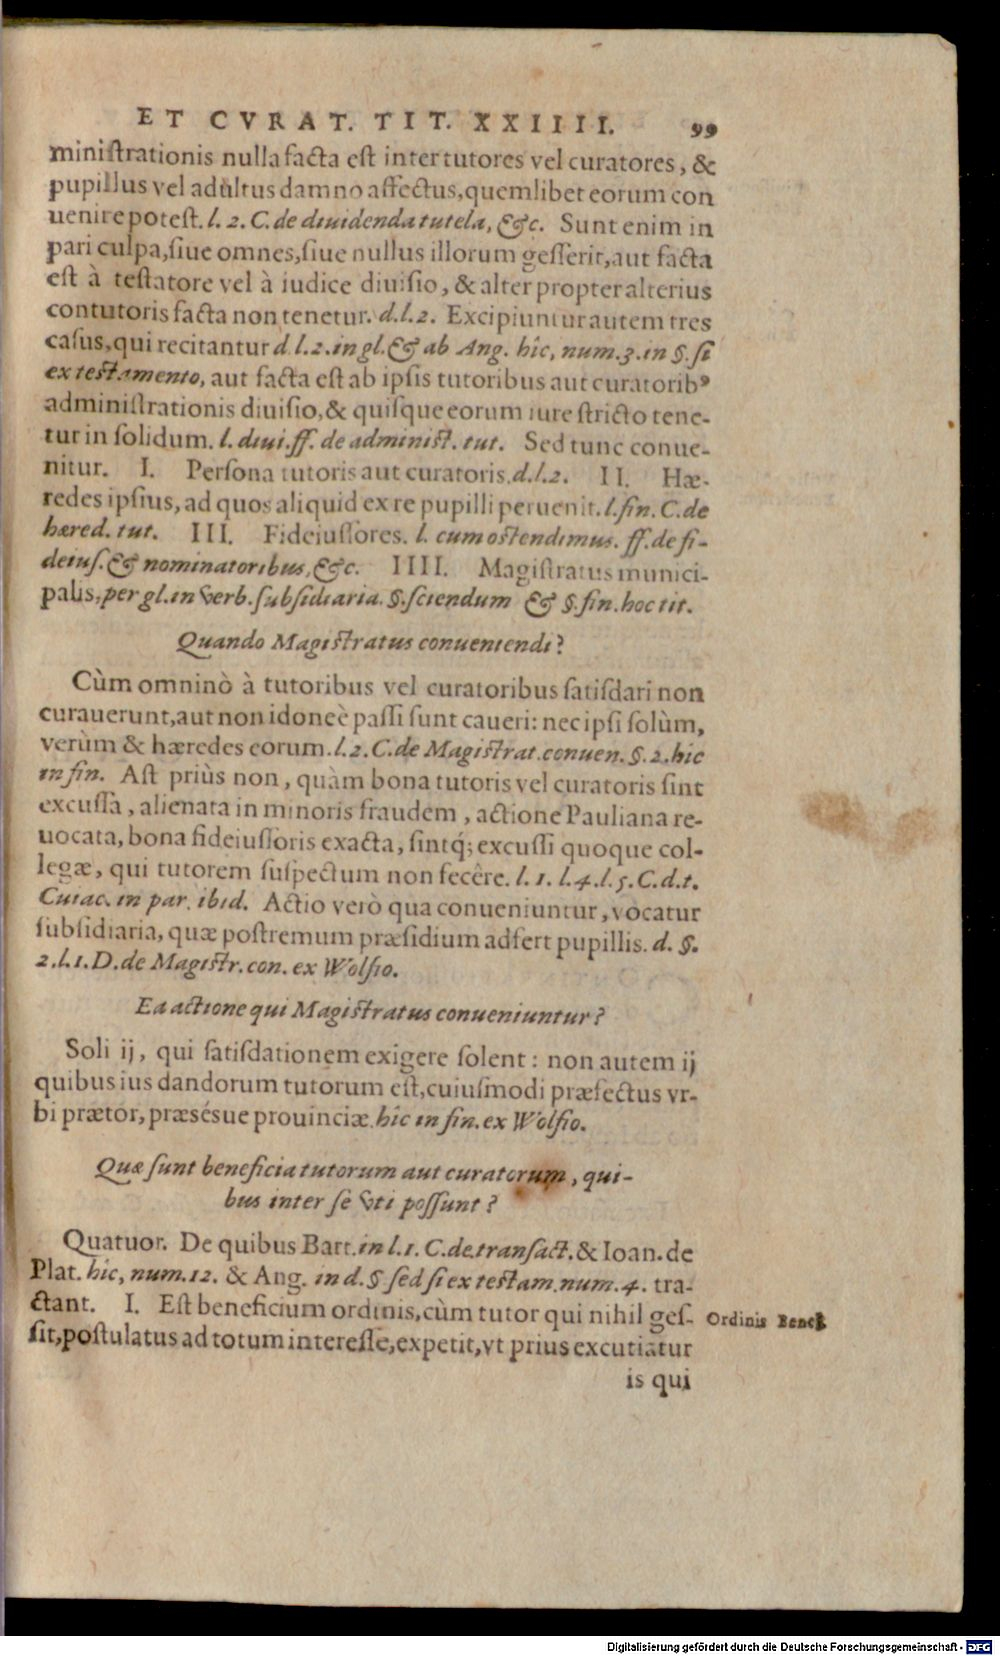 ET CVRAT. TIT. XXIIII. 99
miniſtrationis nulla facta eſt inter tutores vel curatores, &
pupillus vel adultus damno affectus, quemlibet eorum con
uenire poteſt. l. 2. C. de diuidenda tutela, &c. Sunt enim in
pari culpa, ſiue omnes, ſiue nullus illorum geſſerit, aut facta
eſt à teſtatore vel à iudice diuiſio, & alter propter alterius
contutoris facta non tenetur. d. l. 2. Excipiuntur autem tres
caſus, qui recitantur d. l. 2. in gl. & ab Ang. hîc, num. 3. in §. ſi
ex teſtamento, aut facta eſt ab ipſis tutoribus aut curatoribꝰ
adminiſtrationis diuiſio, & quiſque eorum iure ſtricto tene-
tur in ſolidum. l. diui. ff. de adminiſt. tut. Sed tunc conue-
nitur. I. Perſona tutoris aut curatoris. d. l. 2. II. Hæ-
redes ipſius, ad quos aliquid ex re pupilli peruenit. l. fin. C. de
hæred. tut. III. Fideiuſſores. l. cum oſtendimus. ff. de fi-
deiuſ. & nominatoribus, &c. IIII. Magiſtratus munici-
palis, per gl. in verb. ſubſidiaria. §. ſciendum & §. fin. hoc tit.
Quando Magiſtratus conueniendi?
Cùm omninò à tutoribus vel curatoribus ſatiſdari non
curauerunt, aut non idoneè paſſi ſunt caueri: nec ipſi ſolùm,
verùm & hæredes eorum. l. 2. C. de Magiſtrat. conuen. §. 2. hic
in fin. Aſt priùs non, quàm bona tutoris vel curatoris ſint
excuſſa, alienata in minoris fraudem, actione Pauliana re-
uocata, bona fideiuſſoris exacta, ſintq́; excuſſi quoque col-
legæ, qui tutorem ſuſpectum non fecêre. l. 1. l. 4. l. 5. C. d. t.
Cuiac. in par. ibid. Actio verò qua conueniuntur, vocatur
ſubſidiaria, quæ poſtremum præſidium adfert pupillis. d. §.
2. l. 1. D. de Magiſtr. con. ex Wolfio.
Ea actione qui Magiſtratus conueniuntur?
Soli ij, qui ſatiſdationem exigere ſolent: non autem ij
quibus ius dandorum tutorum eſt, cuiuſmodi præfectus vr-
bi prætor, præséſue prouinciæ. hîc in fin. ex Wolfio.
Quæ ſunt beneficia tutorum aut curatorum, qui-
bus inter ſe vti poſſunt?
Quatuor. De quibus Bart. in l. 1. C. de tranſact. & Ioan. de
Plat. hic, num. 12. & Ang. in d. § ſed ſi ex teſtam. num. 4. tra-
ctant. I. Eſt beneficium ordinis, cùm tutor qui nihil geſ- Ordinis Benef.
ſit, poſtulatus ad totum intereſſe, expetit, vt prius excutiatur
is qui
Digitalisierung gefördert durch die Deutsche Forschungsgemeinschaft - DFG